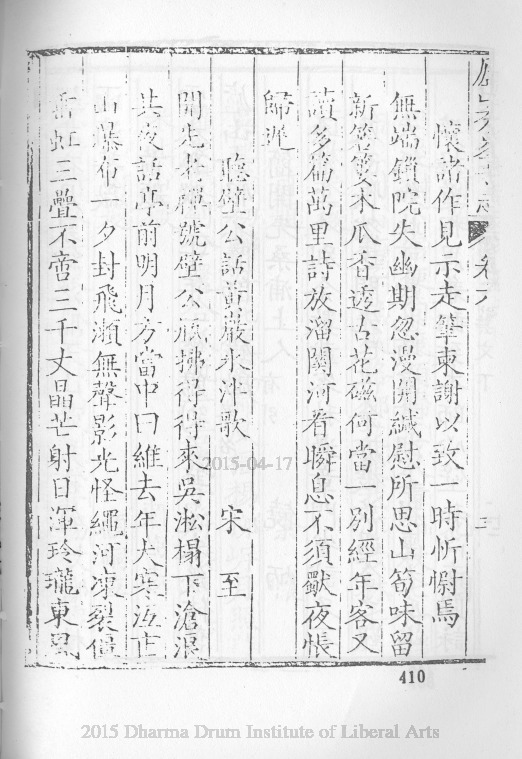 卷六
懷諸作見示走筆柬謝以致一時忻慰焉
無端鎖院失幽期忽漫開緘慰所思山筍味留
新籜美木瓜香透古花磁何當一別經年客又
讀多篇萬里詩放溜關河看瞬息不須獸夜悵
歸遲
聽壁公話黃巖水泮歌 宋至
開先老禪號壁公瓶拂得得來吳淞榻下滄浪
共夜話亭前明月方當中曰維去年大寒沍庄
山瀑布一夕封飛瀬無聲影光怪繩河凍裂僵
岳虹三疊不啻三千丈晶芒射日渾玲瓏東風
410
2015-04-17
2015 Dharma Drum Institute of Liberal Arts